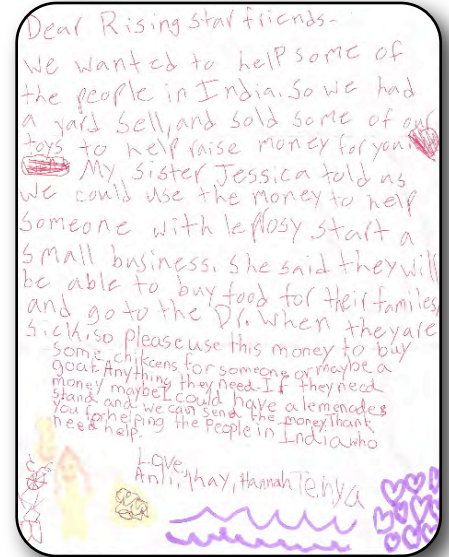 Dear Rising star friends-
We wanted to help some of
the people in India. So we had
a yard Sell, and sold some of our
toys to help raise money for you.
My sister Jessica told us
we could use the money to help
someone with leplosy start a
small business. She said they will
be able to buy food for their familes,
and go to the Dr. when they are
sick, so please use this money to buy
some chikcens for someone or maybe a
goat. Anything they need. If they need
money maybe I could have a lemenades
stand and we can send the money. Thank
you for helping the People in India who
need help.
Love,
Hannah Tenya